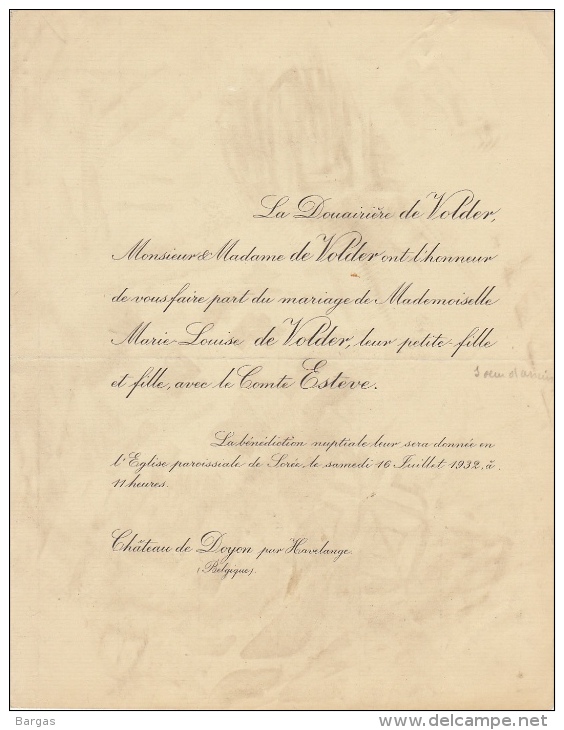 La Douairière de Volder,
Monsieur & Madame de Volder ont l'honneur
de vous faire part du mariage de Mademoiselle
Marie-Louise de Volder, leur petite-fille
et fille, avec le Comte Estève.
La bénédiction nuptiale leur sera donnée en
l'Eglise paroissiale de Sorée, le samedi 16 Juillet 1932, à
11 heures.
Château de Doyon par Havelange.
(Belgique).
Bargas
delcampe.net